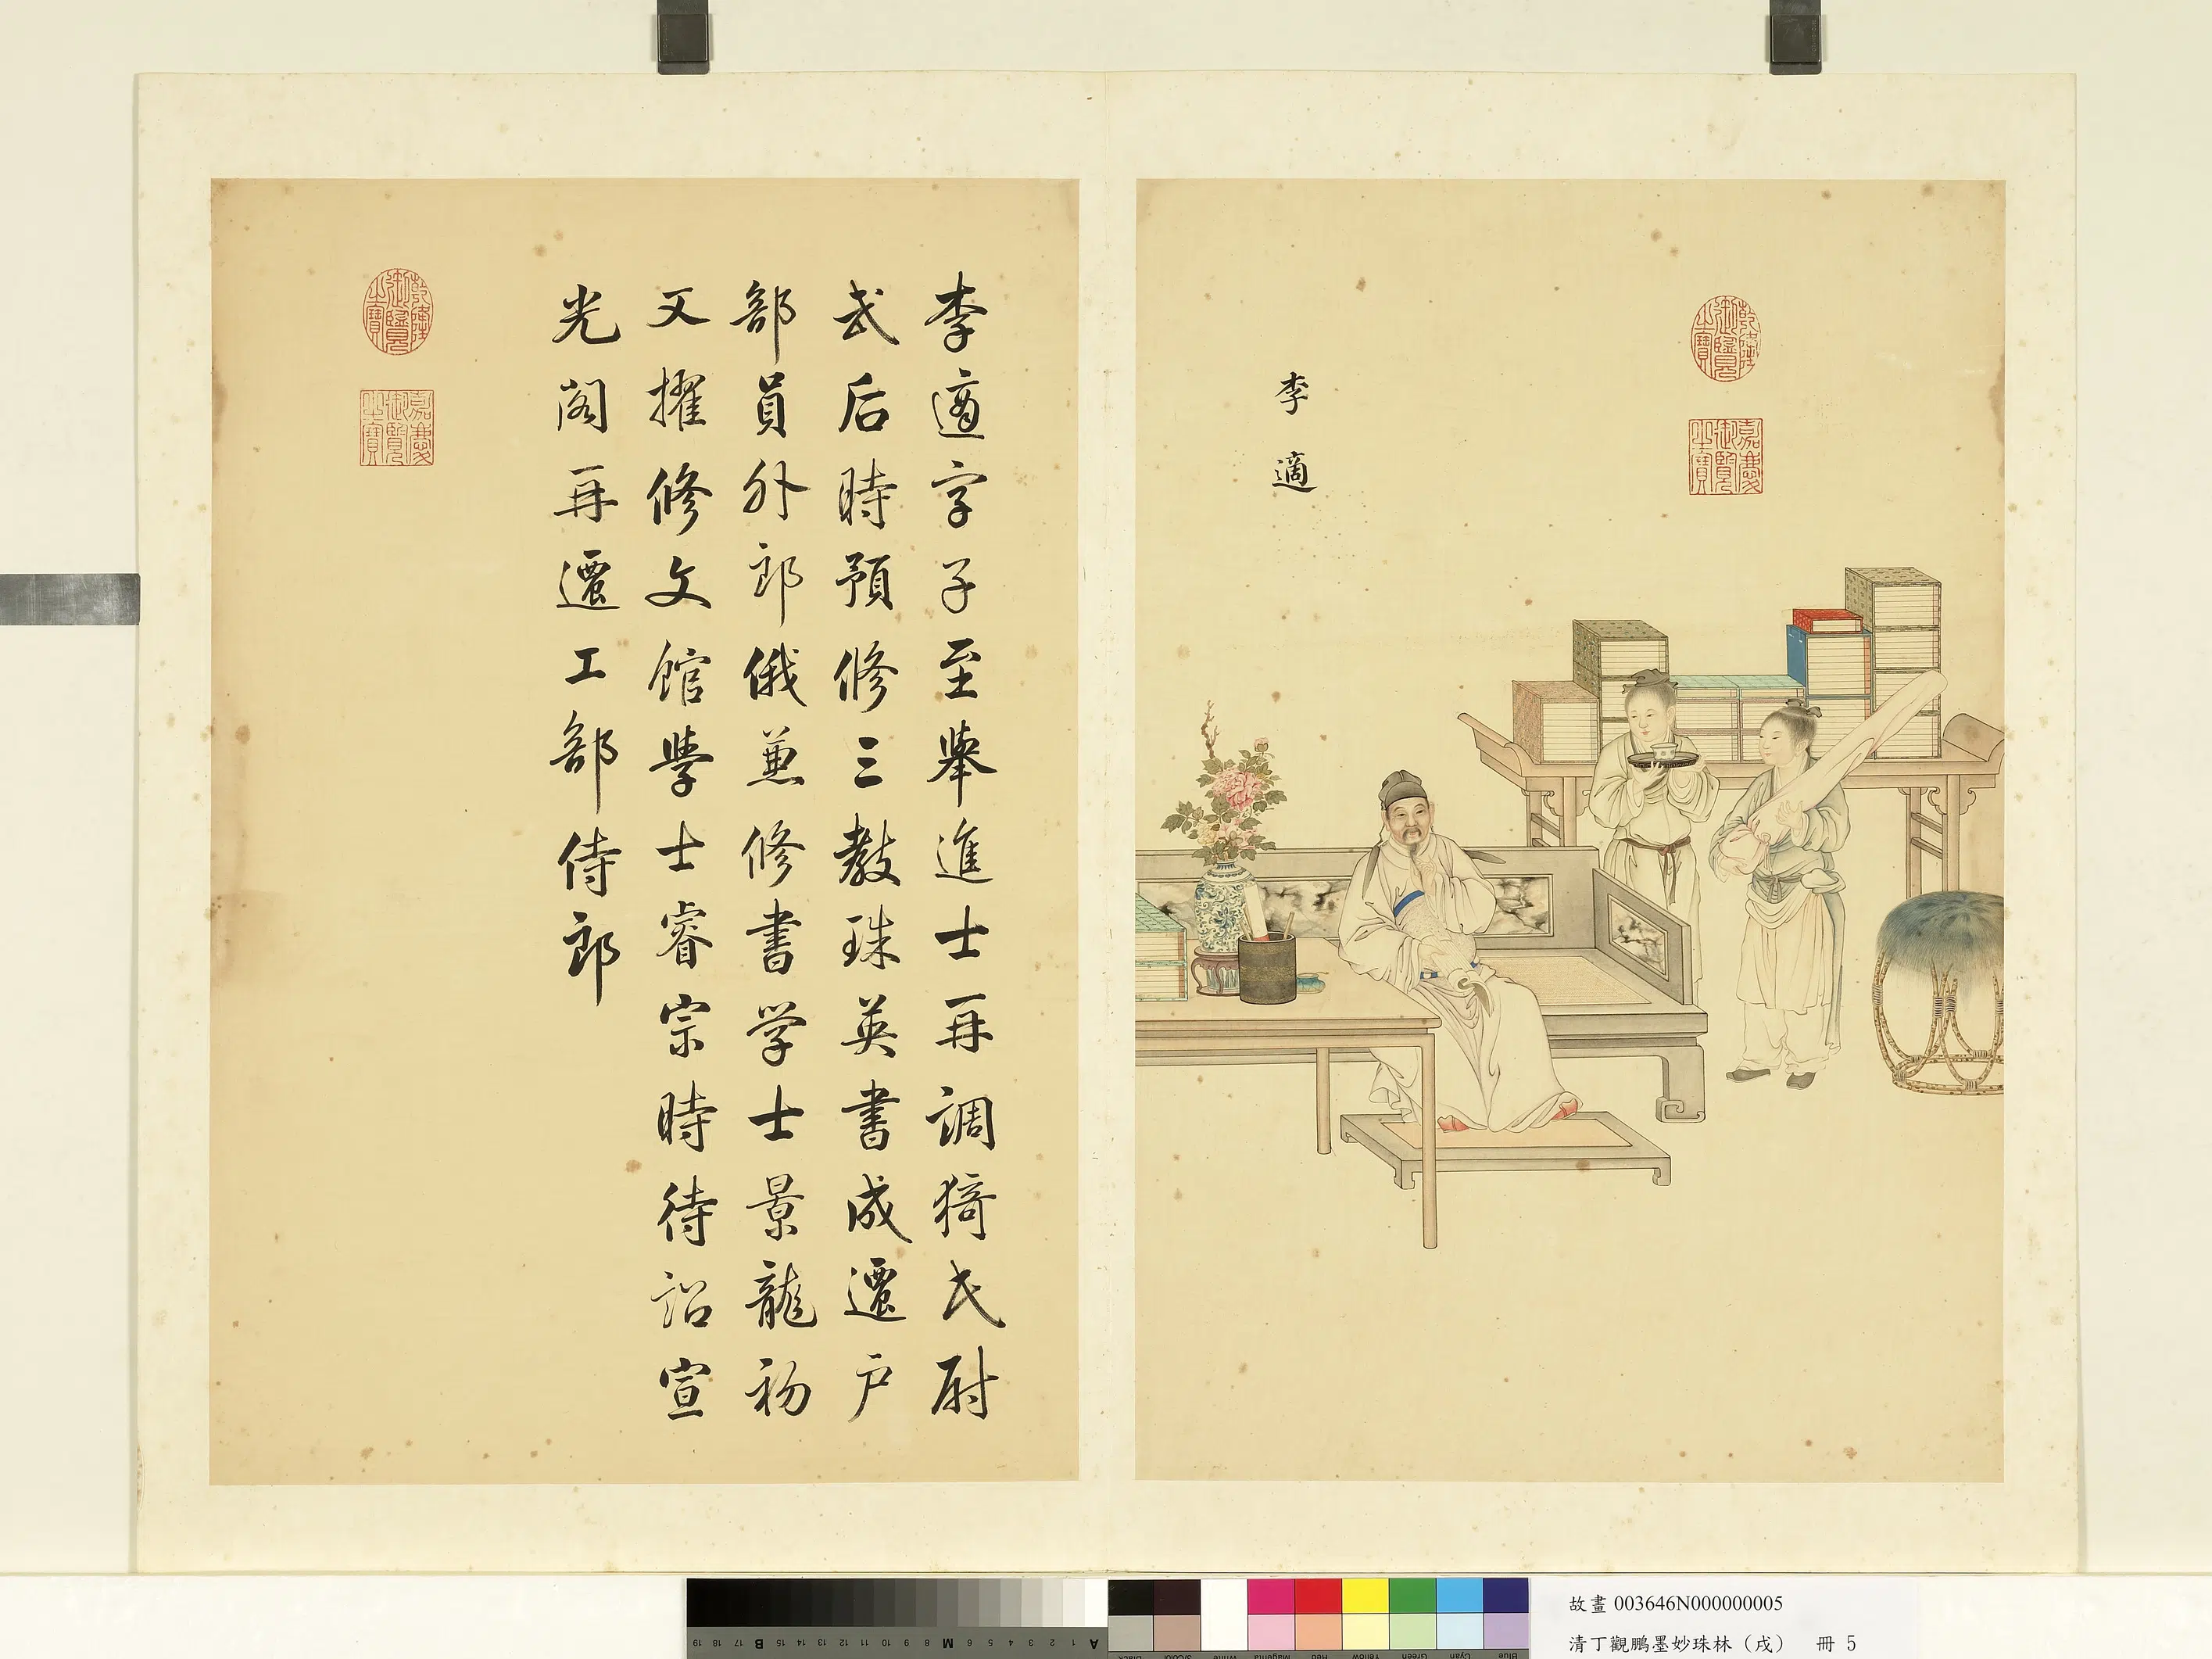 李適
乾隆御覽之寶
嘉慶御覽之寶
李適字子至舉進士再調猗氏尉
武后時預修三教珠英書成遷戶
部員外郎俄兼修書学士景龍初
又擢修文館學士睿宗時待詔宣
光閣再遷工部侍郎
乾隆御鑒之寶
嘉慶御覽之寶
19 18 17 B 15 14 13 12 11 10 9 8 M 6 5 4 3 2 1 A
Black 3/Color White Magenta Red Yellow Green Cyan Blue
故畫 003646N000000005
清丁觀鵬墨妙珠林（戌） 冊 5